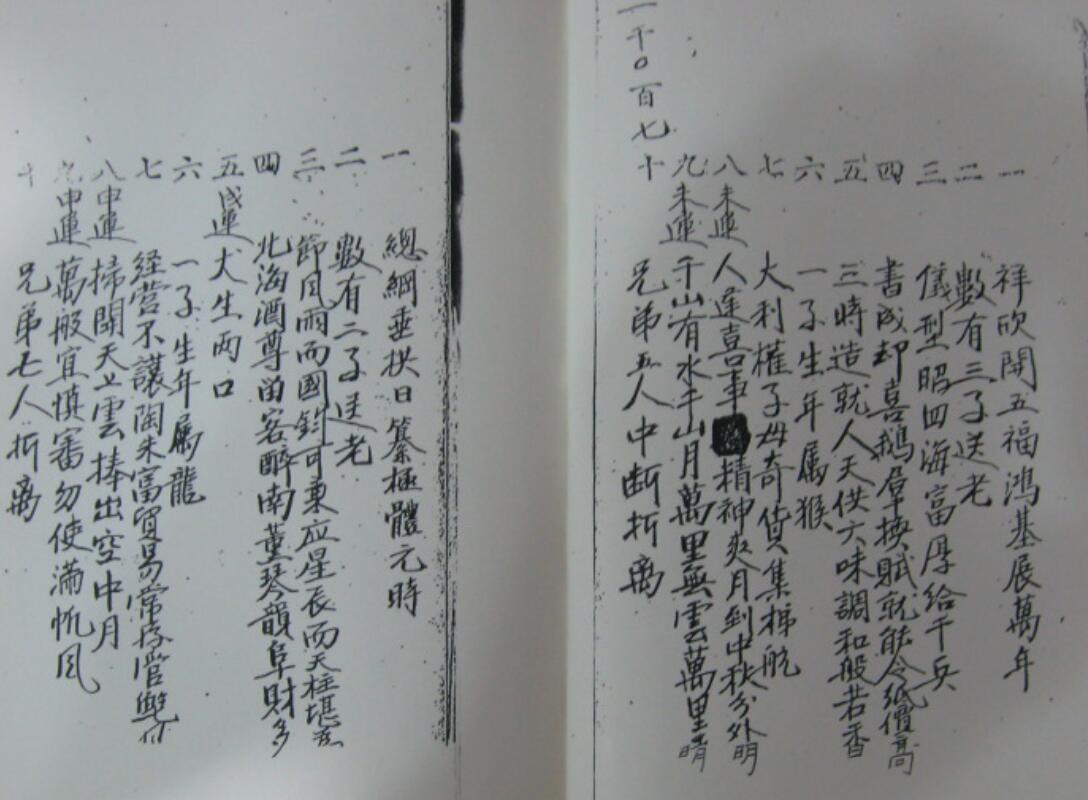 一千〇百七
一 祥欣開五福鴻基展萬年
二 數有三子送老
三 儀型昭四海富厚給千兵
四 書成却喜鵝羣換賦就能令紙價高
五 三時造就人天供六味調和般若香
六 一子生年属猴
七 大利權子母奇貨集梯航
八 未運 人逢喜事精神爽月到中秋分外明
九 未運 千山有水千山月萬里無雲萬里晴
十 兄弟五人中断折离
一 總綱垂拱日纂極體元時
二 數有二子送老
三 節風雨而國鈞可秉应星辰而天柱堪
四 北海酒尊留客醉南薰琴韻阜財多
五 戌運 犬生两口
六 一子生年属龍
七 経营不讓陶朱富貿易常存管鮑
八 申運 掃開天上雲捧出空中月
九 申運 萬般宜慎審勿使滿帆风
十 兄弟七人折离